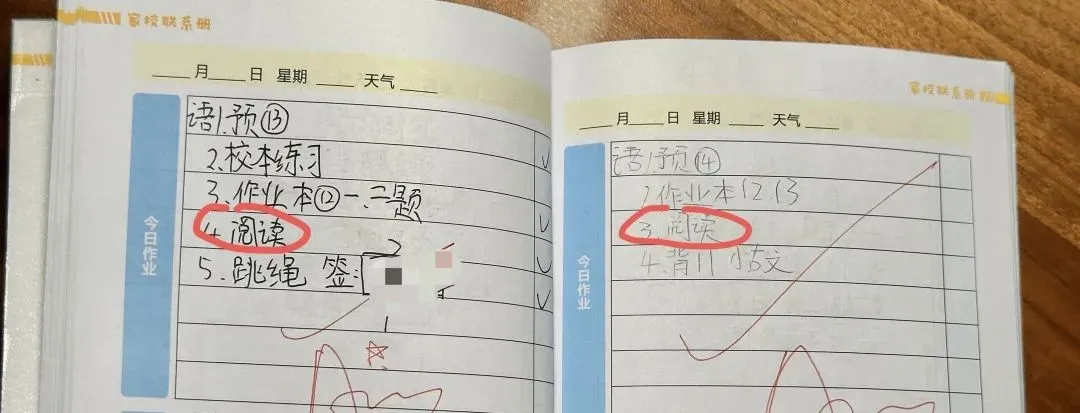 家校联系册
月 日 星期 天气
今日作业
语1.预⑬
2.校本练习
3.作业本⑫一.二题
4.阅读
5.跳绳 签:
家校联系册
月 日 星期 天气
今日作业
语1.预⑭
2.作业本12.13
3.阅读
4.背11 小古文